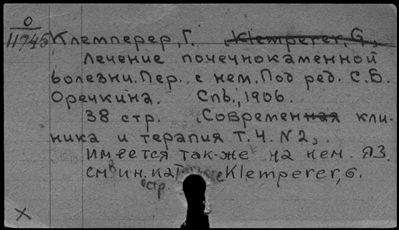 О
11945 Клемперер, Г. Klemperer, G.,
Лечение почечнокаменной
болезни. Пер. с нем. Под ред. С.Б.
Оречкина. Спб., 1906.
38 стр. (Современная кли-
ника и терапия Т.4. N2).
Имеется так-же на нем. яз.
см. ин. ка Klemperer, G.
стр.
X